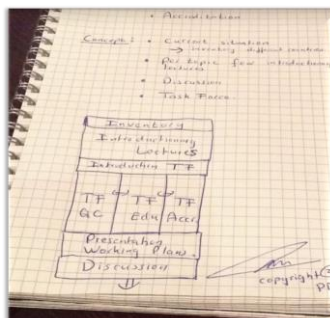 • Accreditation
Concept: • Current situation
→ inventory different countries
• Per topic few introductionary
lectures
• Discussion
• Task Force
Inventory
Introductionary
Lectures
Introduction TF
TF TF TF
QC Edu Accr.
Presentation
Working Plans.
Discussion
copyright